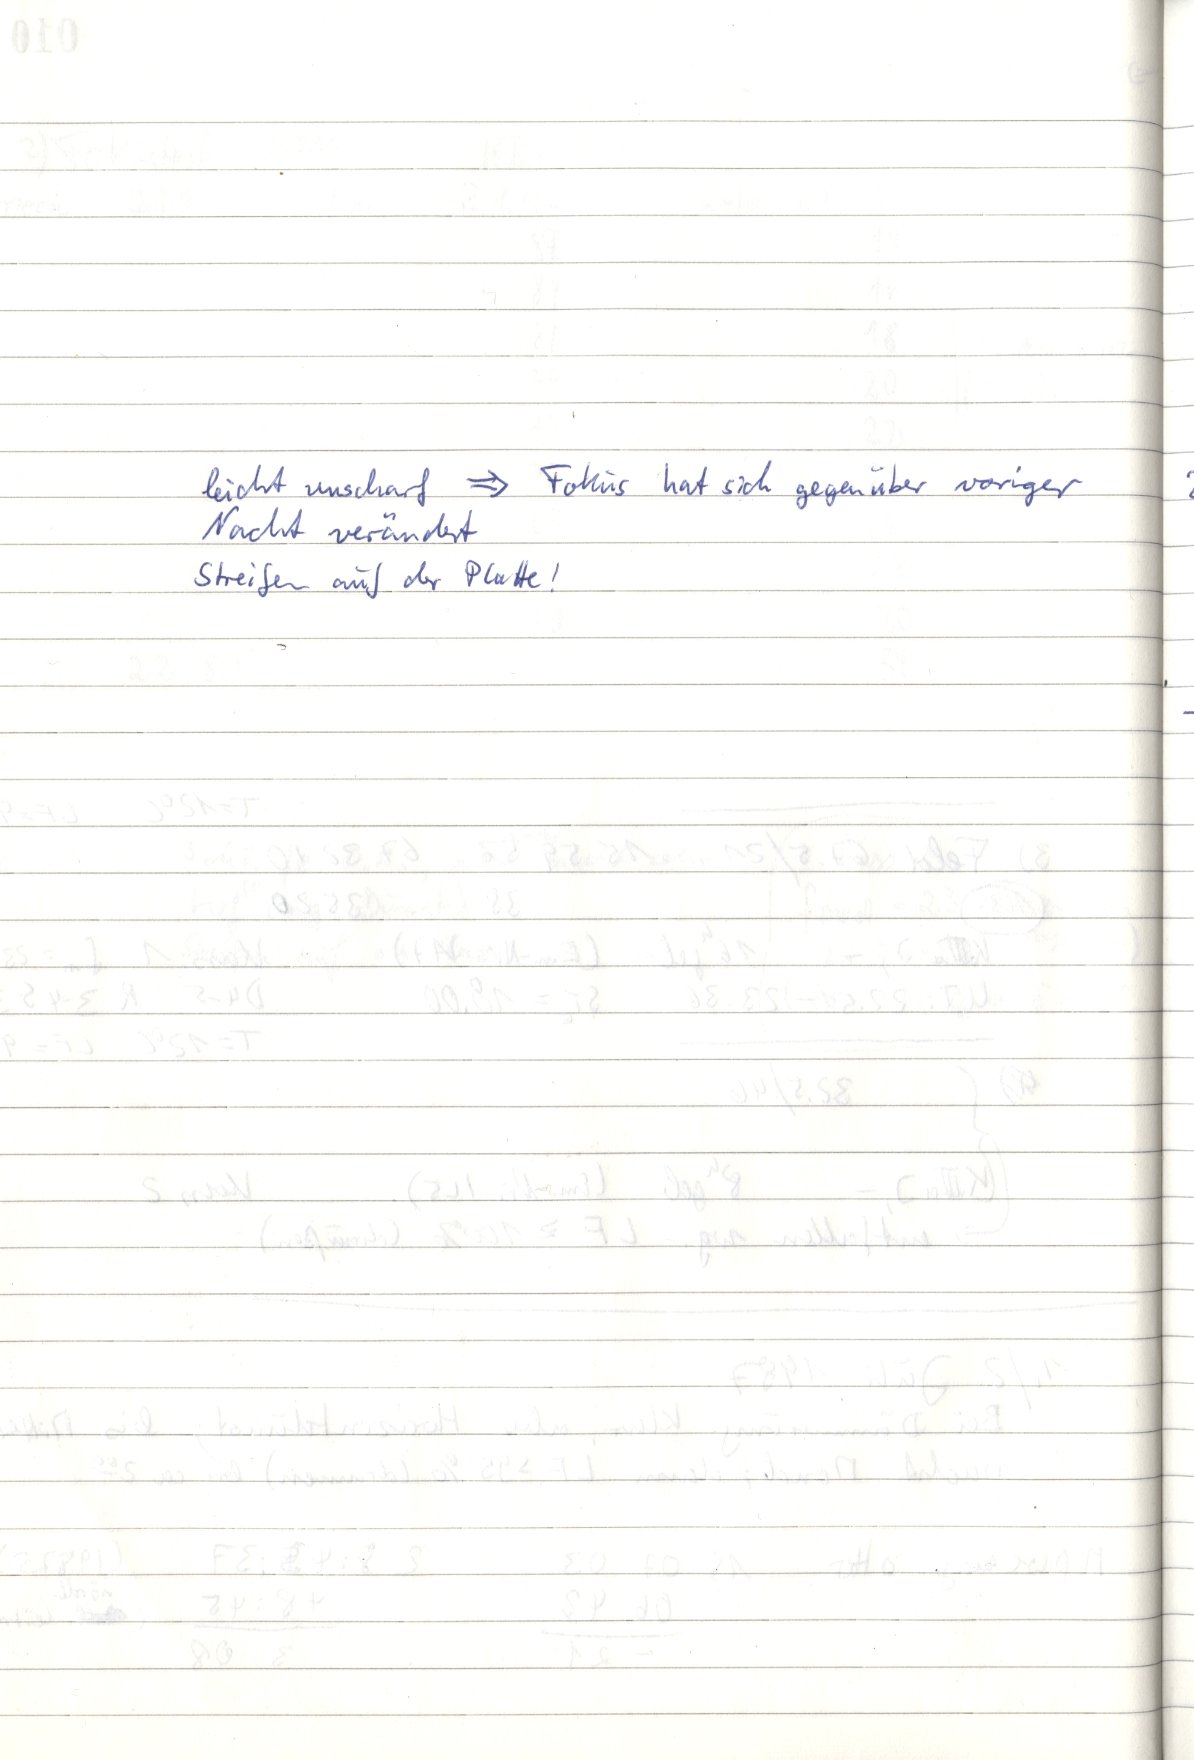 leicht unscharf ⇒ Fokus hat sich gegenüber voriger
Nacht verändert
Streifen auf der Platte!